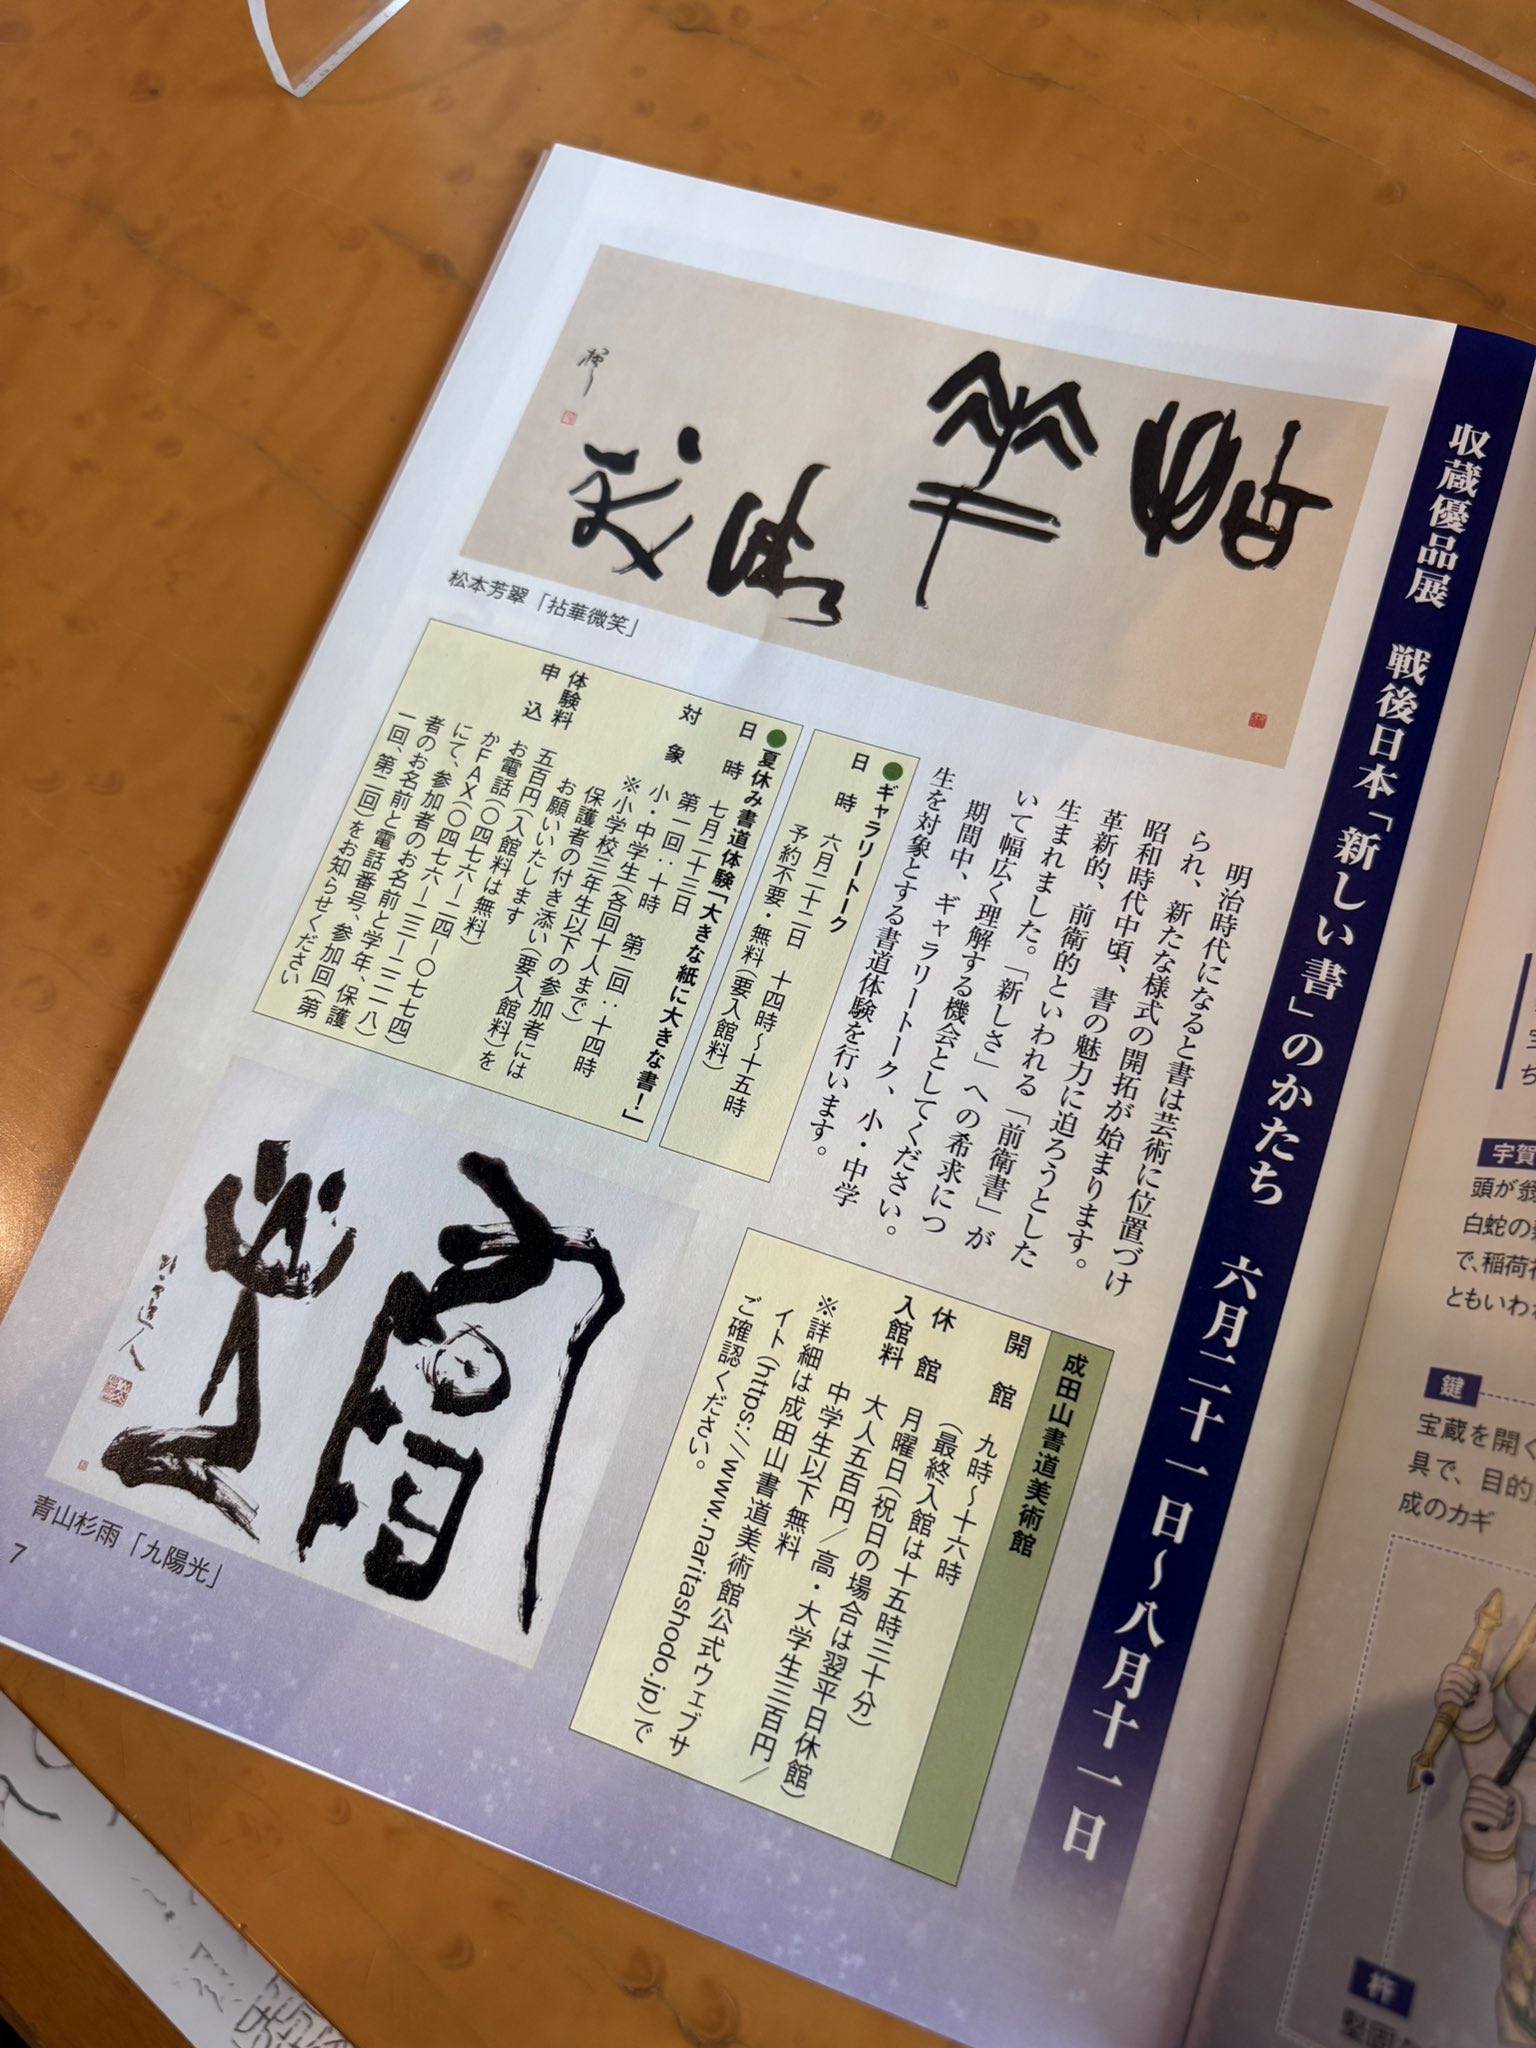 収蔵優品展 戦後日本「新しい書」のかたち 六月二十一日〜八月十一日
明治時代になると書は芸術に位置づけ
られ、新たな様式の開拓が始まります。
昭和時代中頃、書の魅力に迫ろうとした
革新的、前衛的といわれる「前衛書」が
生まれました。「新しさ」への希求につ
いて幅広く理解する機会としてください。
期間中、ギャラリートーク、小・中学
生を対象とする書道体験を行います。
●ギャラリートーク
日時 六月二十二日 十四時〜十五時
予約不要・無料(要入館料)
●夏休み書道体験「大きな紙に大きな書!」
日時 七月二十三日
第一回:十時 第二回:十四時
対象 小・中学生(各回十人まで)
※小学校三年生以下の参加者には
保護者の付き添い(要入館料)を
お願いいたします
体験料 五百円(入館料は無料)
申込 お電話(〇四七六ー二四ー〇七七四)
かFAX(〇四七六ー二三ー二二一八)
にて、参加者のお名前と学年、保護
者のお名前と電話番号、参加回(第
一回、第二回)をお知らせください
成田山書道美術館
開館 九時〜十六時
(最終入館は十五時三十分)
休館 月曜日(祝日の場合は翌平日休館)
入館料 大人五百円/高・大学生三百円/
中学生以下無料
※詳細は成田山書道美術館公式ウェブサ
イト(https://www.naritashodo.jp)で
ご確認ください。
松本芳翠「拈華微笑」
青山杉雨「九陽光」
7
宇賀
頭が翁
白蛇の
で、稲荷
ともいわ
鍵
宝蔵を開く
具で、目的
成のカギ
杵